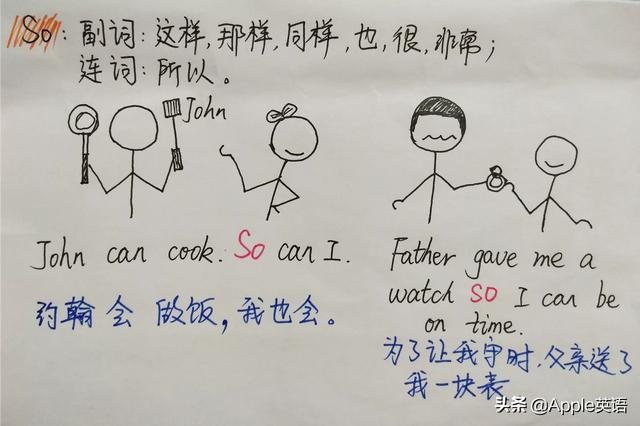 So: 副词: 这样, 那样, 同样, 也, 很, 非常;
连词: 所以。
John
John can cook. So can I.
约翰会 做饭, 我也会。
Father gave me a
watch so I can be
on time.
为了让我守时, 父亲送了
我一块表
头条 @Apple英语